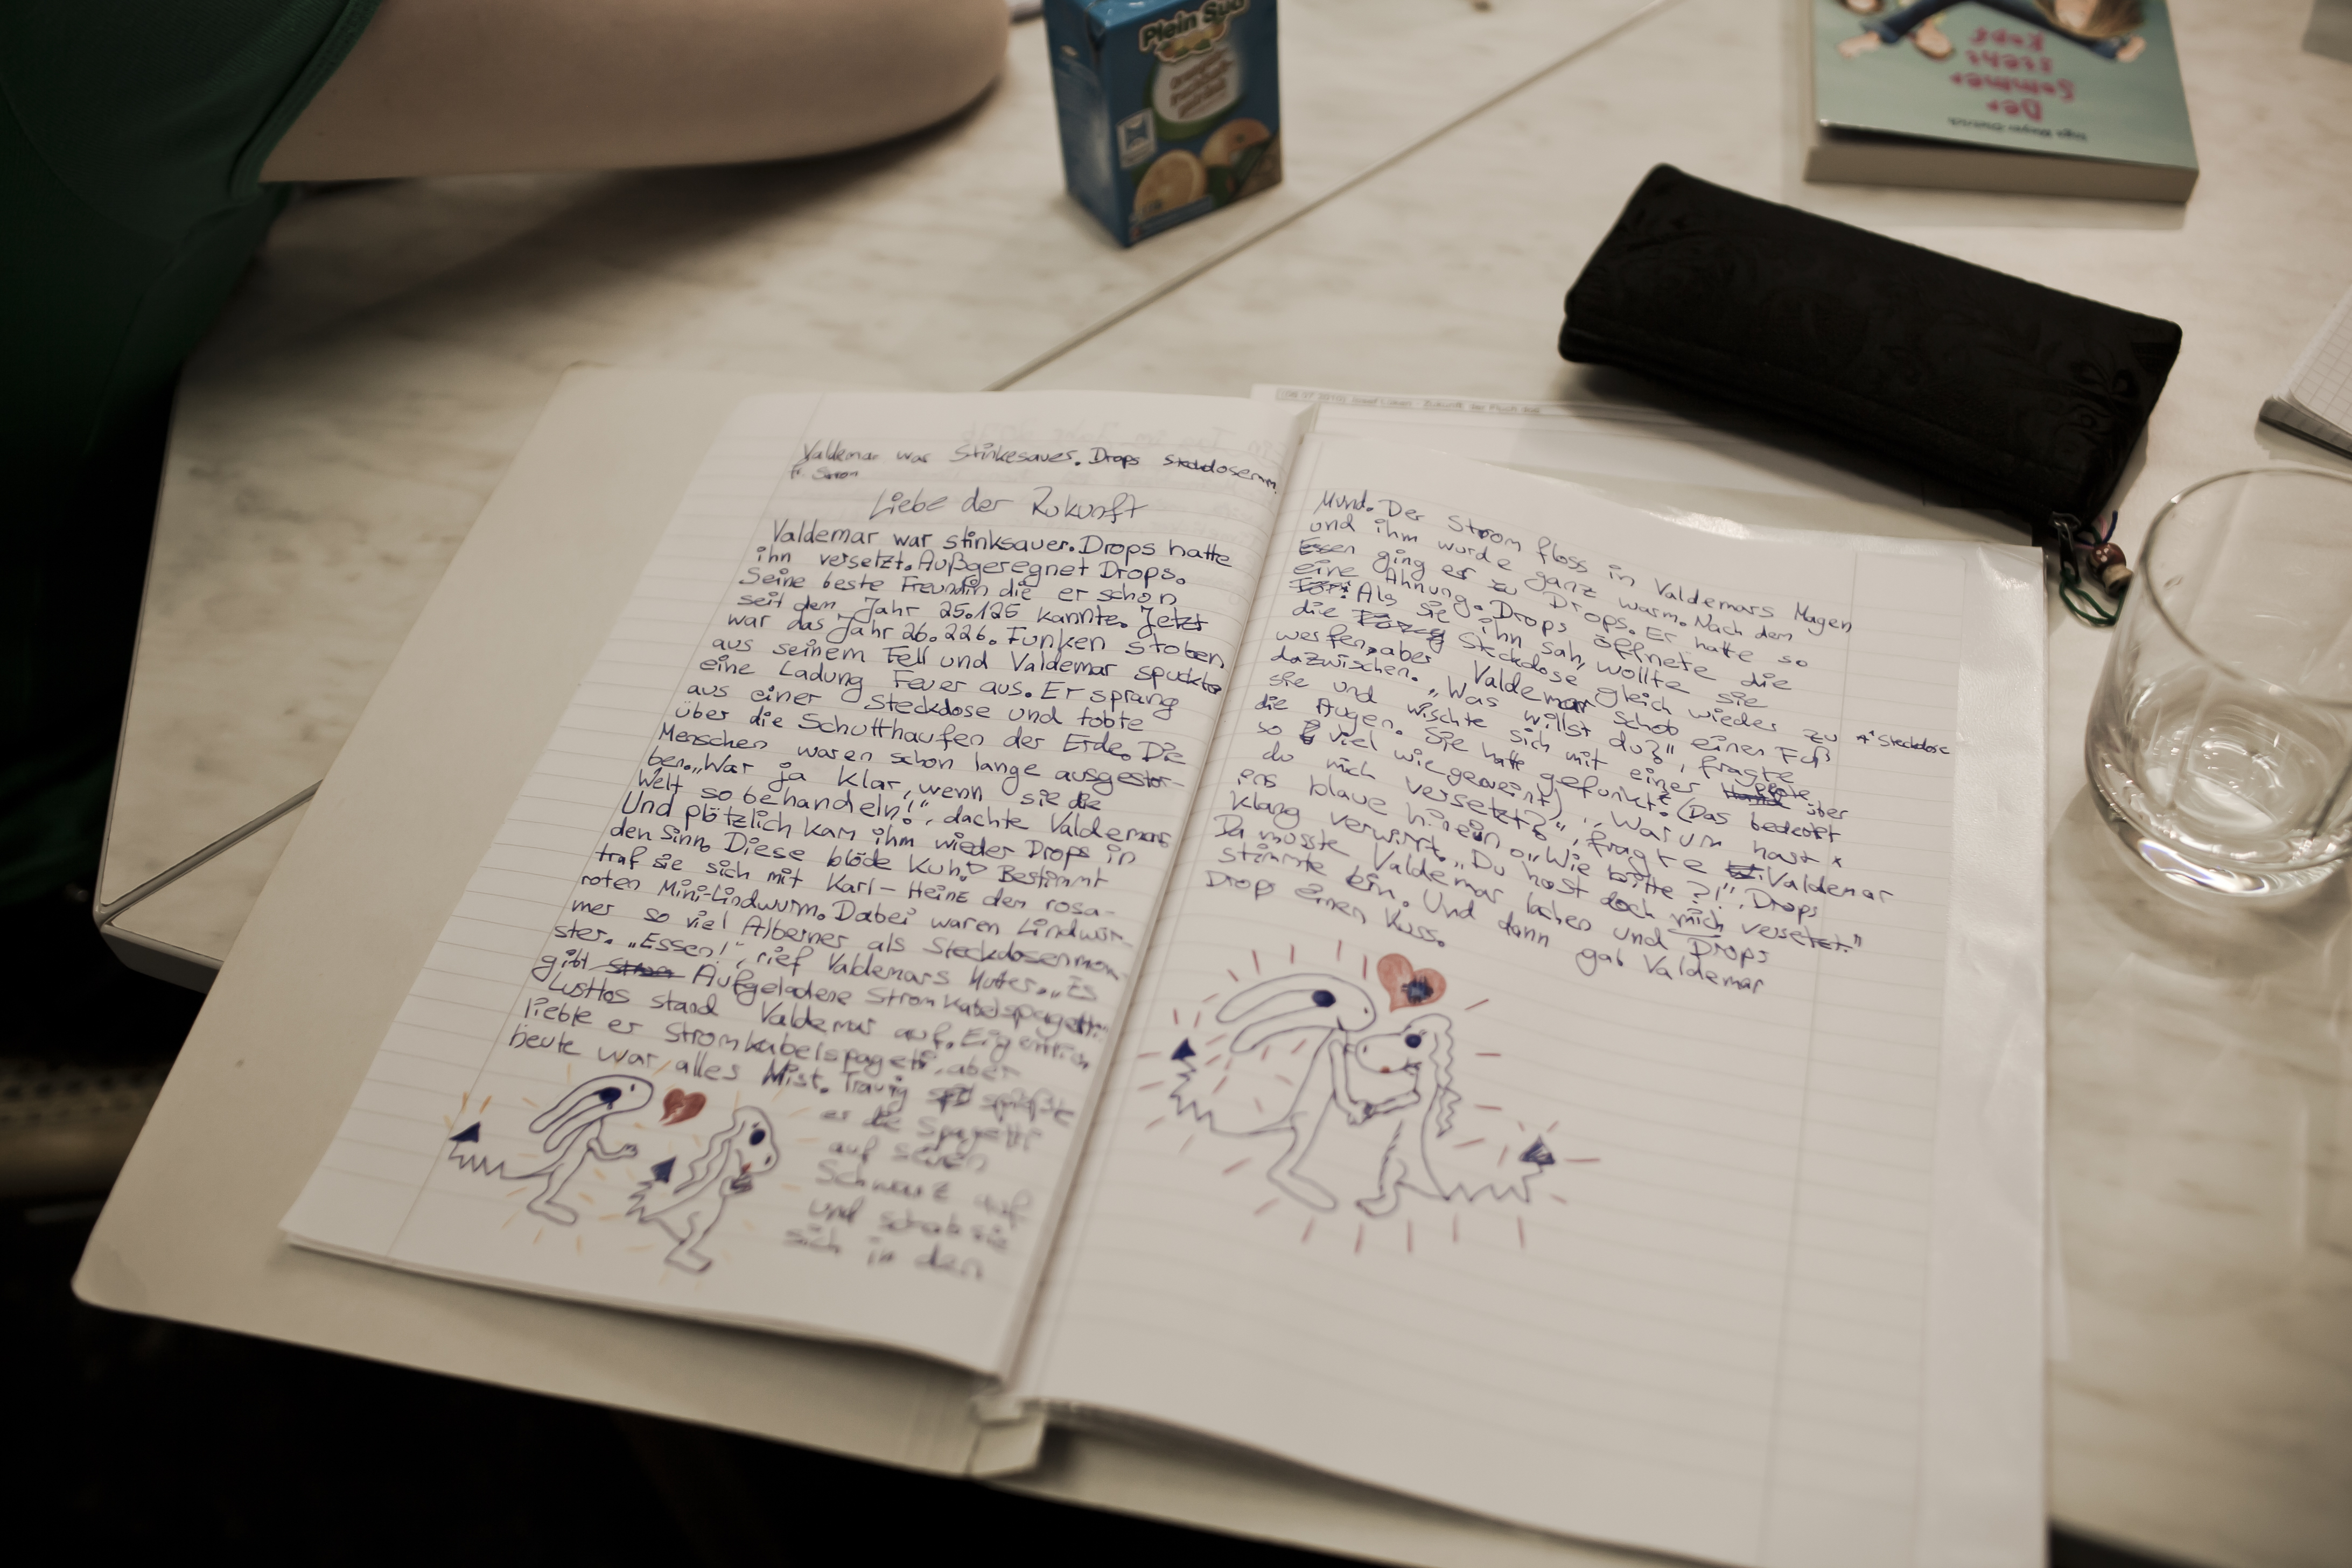 Plein Sud
Der
Sommer
steht
Kopf
Valdemar war Stinkesauer. Drops
Liebe der Zukunft
Valdemar war stinksauer. Drops hatte
ihn versetzt. Außgeregnet Drops.
Seine beste Freundin die er schon
seit dem Jahr 25.126 kannte. Jetzt
war das Jahr 26.226. Funken stoben
aus seinem Fell und Valdemar spuckte
eine Ladung Feuer aus. Er sprang
aus einer Steckdose und tobte
über die Schutthaufen der Erde. Die
Menschen waren schon lange ausgestor-
ben. „War ja klar, wenn sie die
Welt so behandeln!", dachte Valdemar.
Und plötzlich kam ihm wieder Drops in
den Sinn. Diese blöde Kuh! Bestimmt
traf sie sich mit Karl-Heinz den rosa-
roten Mini-Lindwurm. Dabei waren Lindwür-
mer so viel Alberner als Steckdosenmon-
ster. „Essen!", rief Valdemars Mutter. „Es
gibt Aufgeladene Stromkabelspagetti."
Lustlos stand Valdemar auf. Eigentlich
liebte er Stromkabelspageti, aber
heute war alles Mist. Traurig spießte
er die Spagetti
auf seinen
Schwanz auf
und schob sie
sich in den
Mund. Der Strom floss in Valdemars Magen
und ihm wurde ganz warm. Nach dem
Essen ging er zu Drops. Er hatte so
eine Ahnung. Drops öffnete die
Als sie ihn sah, wollte sie
die Steckdose gleich wieder zu
werfen, aber Valdemar schob einen Fuß
dazwischen. „Was willst du?", fragte
sie und wischte sich mit einer Pfote über
die Augen. Sie hatte gefunkt* (Das bedeutet
so viel wie geweint). „Warum hast
du mich versetzt?", fragte Valdemar
ins blaue hinein. „Wie bitte?!", Drops
klang verwirrt. „Du hast doch mich versetzt."
Da musste Valdemar lachen und Drops
stimmte ein. Und dann gab Valdemar
Drops einen Kuss.
* Steckdose